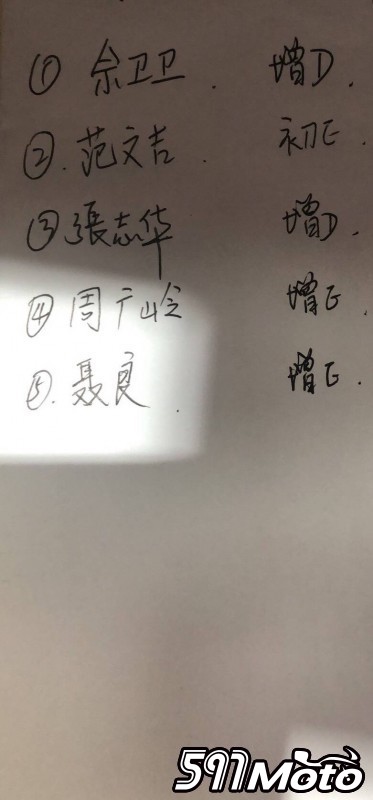 ① 余卫卫. 增D.
②. 范文吉. 初E.
③ 張志华 增D.
④ 周广岭 增E.
⑤. 聂良. 增E.
597Moto